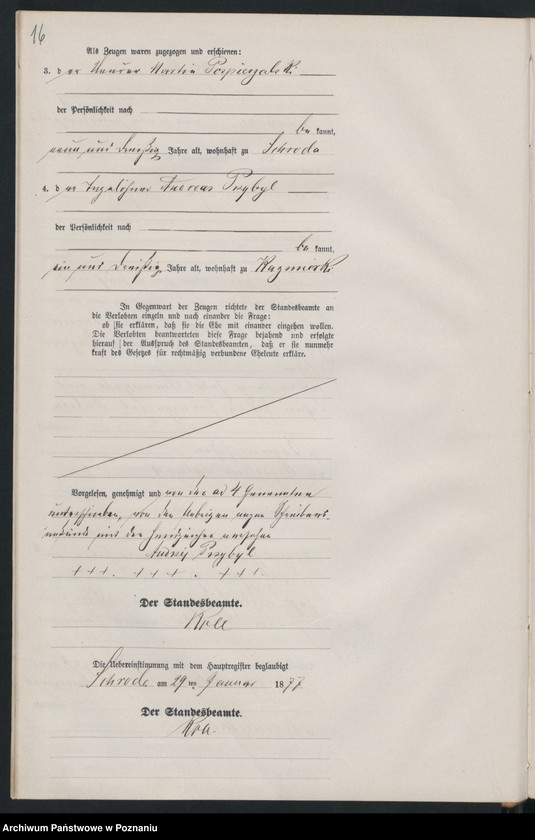 16
Als Zeugen waren zugezogen und erschienen:
3. der Maurer Martin Pospieszalski
der Persönlichkeit nach
bekannt,
neun und dreißig Jahre alt, wohnhaft zu Schroda
4. der Tagelöhner Andreas Przybyl
der Persönlichkeit nach
bekannt,
ein und dreißig Jahre alt, wohnhaft zu
In Gegenwart der Zeugen richtete der Standesbeamte an
die Verlobten einzeln und nach einander die Frage:
ob sie erklären, daß sie die Ehe mit einander eingehen wollen.
Die Verlobten beantworteten diese Frage bejahend und erfolgte
hierauf der Ausspruch des Standesbeamten, daß er sie nunmehr
kraft des Gesetzes für rechtmäßig verbundene Eheleute erkläre.
Vorgelesen, genehmigt und von der ad 4 Genannten
unterschrieben, von den Uebrigen wegen Schreibens-
unkunde mit der Handzeichen versehen
Przybyl
+++. +++. +++.
Der Standesbeamte.
Die Uebereinstimmung mit dem Hauptregister beglaubigt
Schroda am 29ten Januar 1877
Der Standesbeamte.
Archiwum Państwowe w Poznaniu